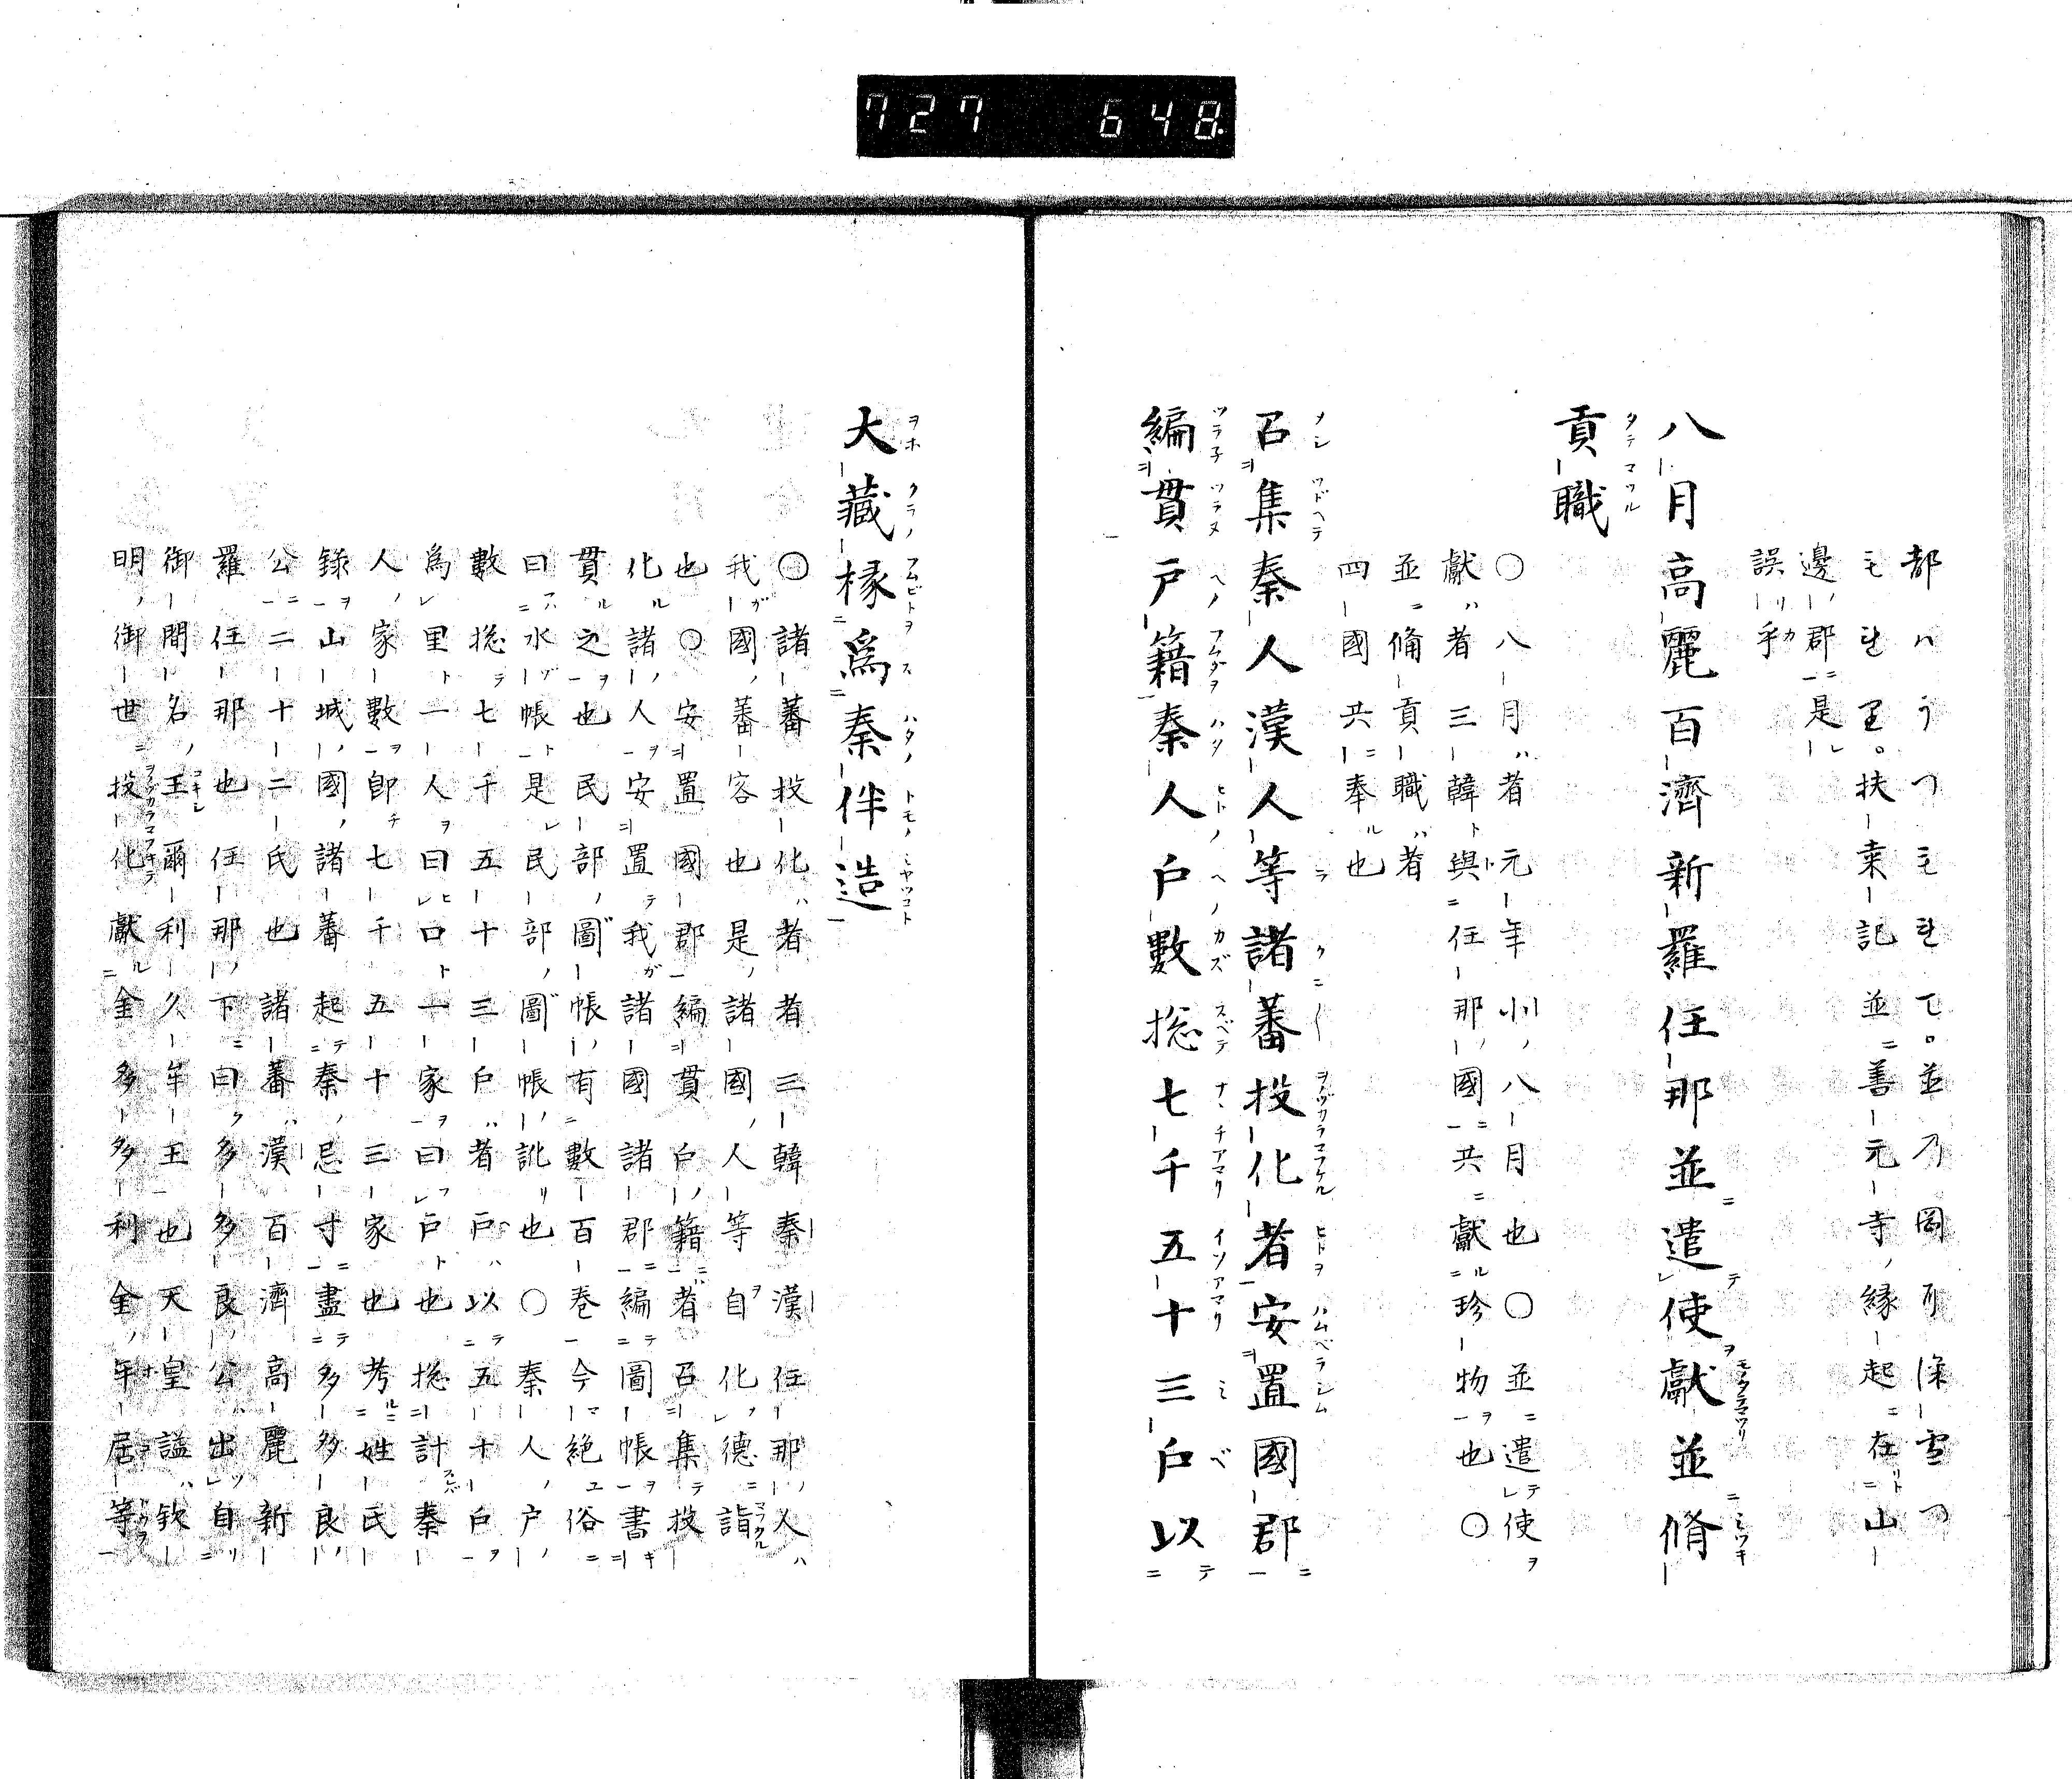 727 648
都ハ
扶桒記並善元寺ノ縁起在山
邊ノ郡是
誤リ乎
八月高麗百濟新羅任那並遣使獻並脩
貢職
〇八月ハ者元年ノ八月也〇並ニ遣テ使ヲ
獻ハ者三韓ト與任那ノ國共ニ獻ル珍物ヲ也〇
並ニ脩貢職ハ者
四國共ニ奉ル也
召集秦人漢人等諸蕃投化者安置國郡
編貫戸籍秦人戸數捴七千五十三戸以
大藏椽爲秦伴造
〇諸蕃投化ハ者者三韓秦漢任那ノ人ハ
我ガ國ノ蕃客也是ノ諸國ノ人等自化ノ德ニ詣
也〇安置國郡編貫戸ノ籍者召集テ投
化ル諸ノ人ヲ安置テ我ガ諸國諸郡ニ編テ圖帳ヲ書キ
貫ル之ヲ也民部ノ圖帳ノ有數百巻今マ絶ユ俗ニ
曰ス水ヅ帳ト是民部ノ圖帳ノ訛リ也〇秦人ノ戸ノ
數捴テ七千五十三戸ハ者戸ハ以テ五十戸ヲ
爲里ト一人ヲ曰ヒ口ト一家ヲ曰フ戸ト也捴計秦
人ノ家數ヲ卽チ七千五十三家也考ルニ姓氏
錄ヲ山城ノ國ノ諸蕃起テ秦ノ忌寸ニ盡テ多多良ノ
公ニ二十二氏也諸蕃ハ漢百濟高麗新
羅任那也任那ノ下ニ曰ク多多良ノ公ハ出ツ自リ
御間名ノ王爾利久牟王也天皇謚ハ欽
明ノ御世ニ投化獻ル金多多利金ノ年居等